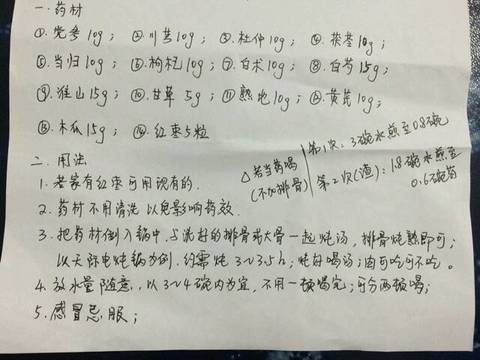 一. 药材
①. 党参10g； ②. 川芎10g； ③. 杜仲10g； ④. 茯苓10g；
⑤. 当归10g； ⑥. 枸杞10g； ⑦. 白术10g； ⑧. 白芍15g；
⑨. 淮山15g； ⑩. 甘草 5g； ⑪. 熟地10g； ⑫. 黄芪10g；
⑬. 木瓜15g； ⑭. 红枣5粒
二. 用法
△若当药喝
(不加排骨)
第1次: 3碗水煎至0.8碗
第2次(渣): 1.8碗水煎至
0.6碗药
1. 若家有红枣可用现有的.
2. 药材不用清洗以免影响药效.
3. 把药材倒入锅中, 与洗好的排骨或大骨一起炖汤, 排骨炖熟即可;
以天际电炖锅为例, 约需炖3~3.5h; 炖好喝汤; 肉可吃可不吃。
4. 放水量随意, 以3~4碗内为宜, 不用一顿喝完; 可分两顿喝;
5. 感冒忌服;